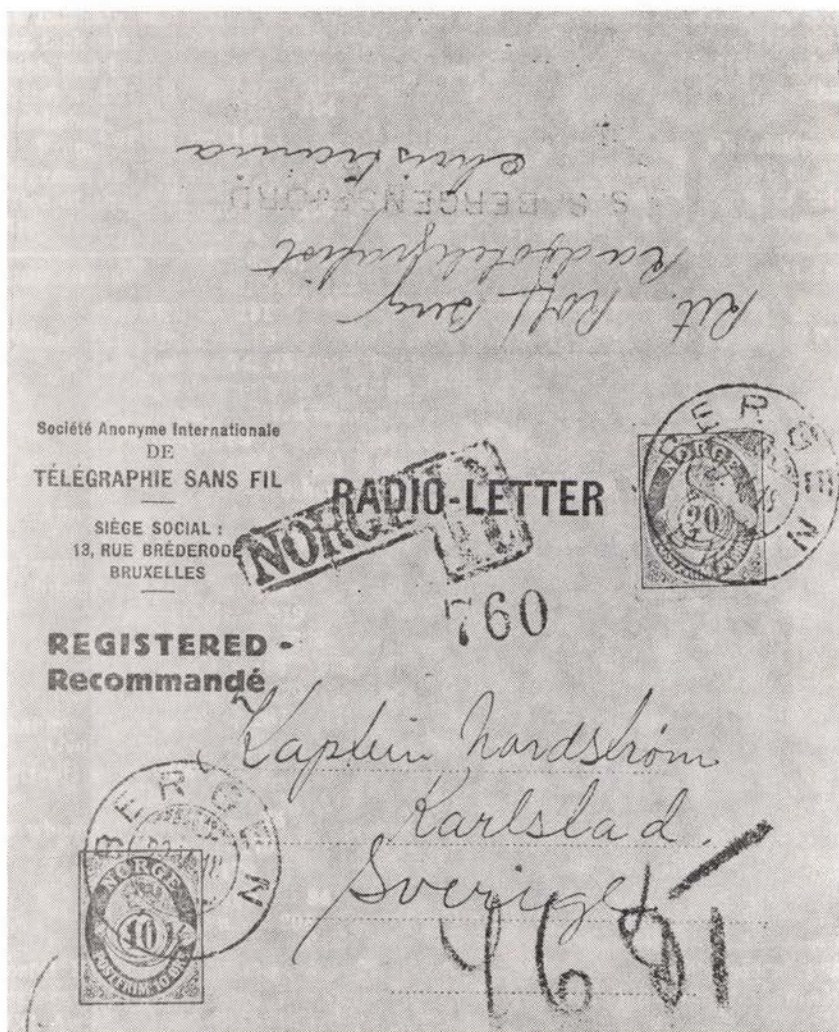 Ret. Rolf Berg
Radiotelegrafist
S.S. BERGENSFJORD
Christiania
Société Anonyme Internationale
DE
TÉLÉGRAPHIE SANS FIL
SIÈGE SOCIAL :
13, RUE BRÉDERODE
BRUXELLES
RADIO-LETTER
NORGE
760
BERGEN
NORGE
20
REGISTERED -
Recommandé
Kaptein Nordström
Karlstad.
Sverige
BERGEN
NORGE
10
POSTFRIM. 10 ØRE
4681